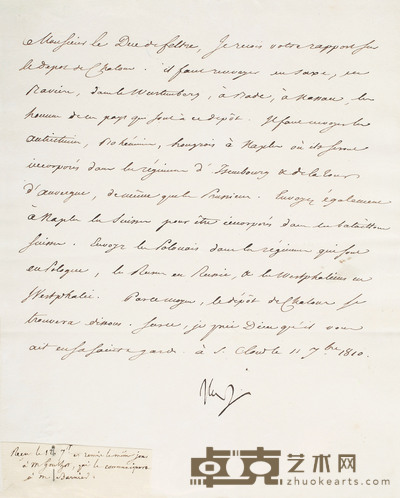 Monsieur le Duc de feltre, Je reçois votre rapport sur
le dépot de Chalons. il faut renvoyer en Saxe, en
Bavière, dans le Wurtemberg, à Bade, à Nassau, les
hommes de ces pays qui sont à ce dépôt. Il faut envoyer les
autrichiens, Bohémiens, hongrois à Naples où ils seront
incorporés dans les régimens d'Isembourg & de la tour
d'auvergne, de même que les Prussiens. Envoyez également
à Naples les Suisses pour être incorporés dans les bataillons
Suisses. Envoyez les Polonais dans les régimens qui sont
en Pologne, les Russes en Russie, & les Westphaliens en
Westphalie. Par ce moyen, le dépôt de Chalons se
trouvera dissous. Sur ce, je prie Dieu qu'il vous
ait en sa sainte garde. à S. Cloud le 11 7bre 1810.
Reçu le 12 7bre et remis le même jour
à m.
à m.
卓克艺术网
www.zhuokearts.com